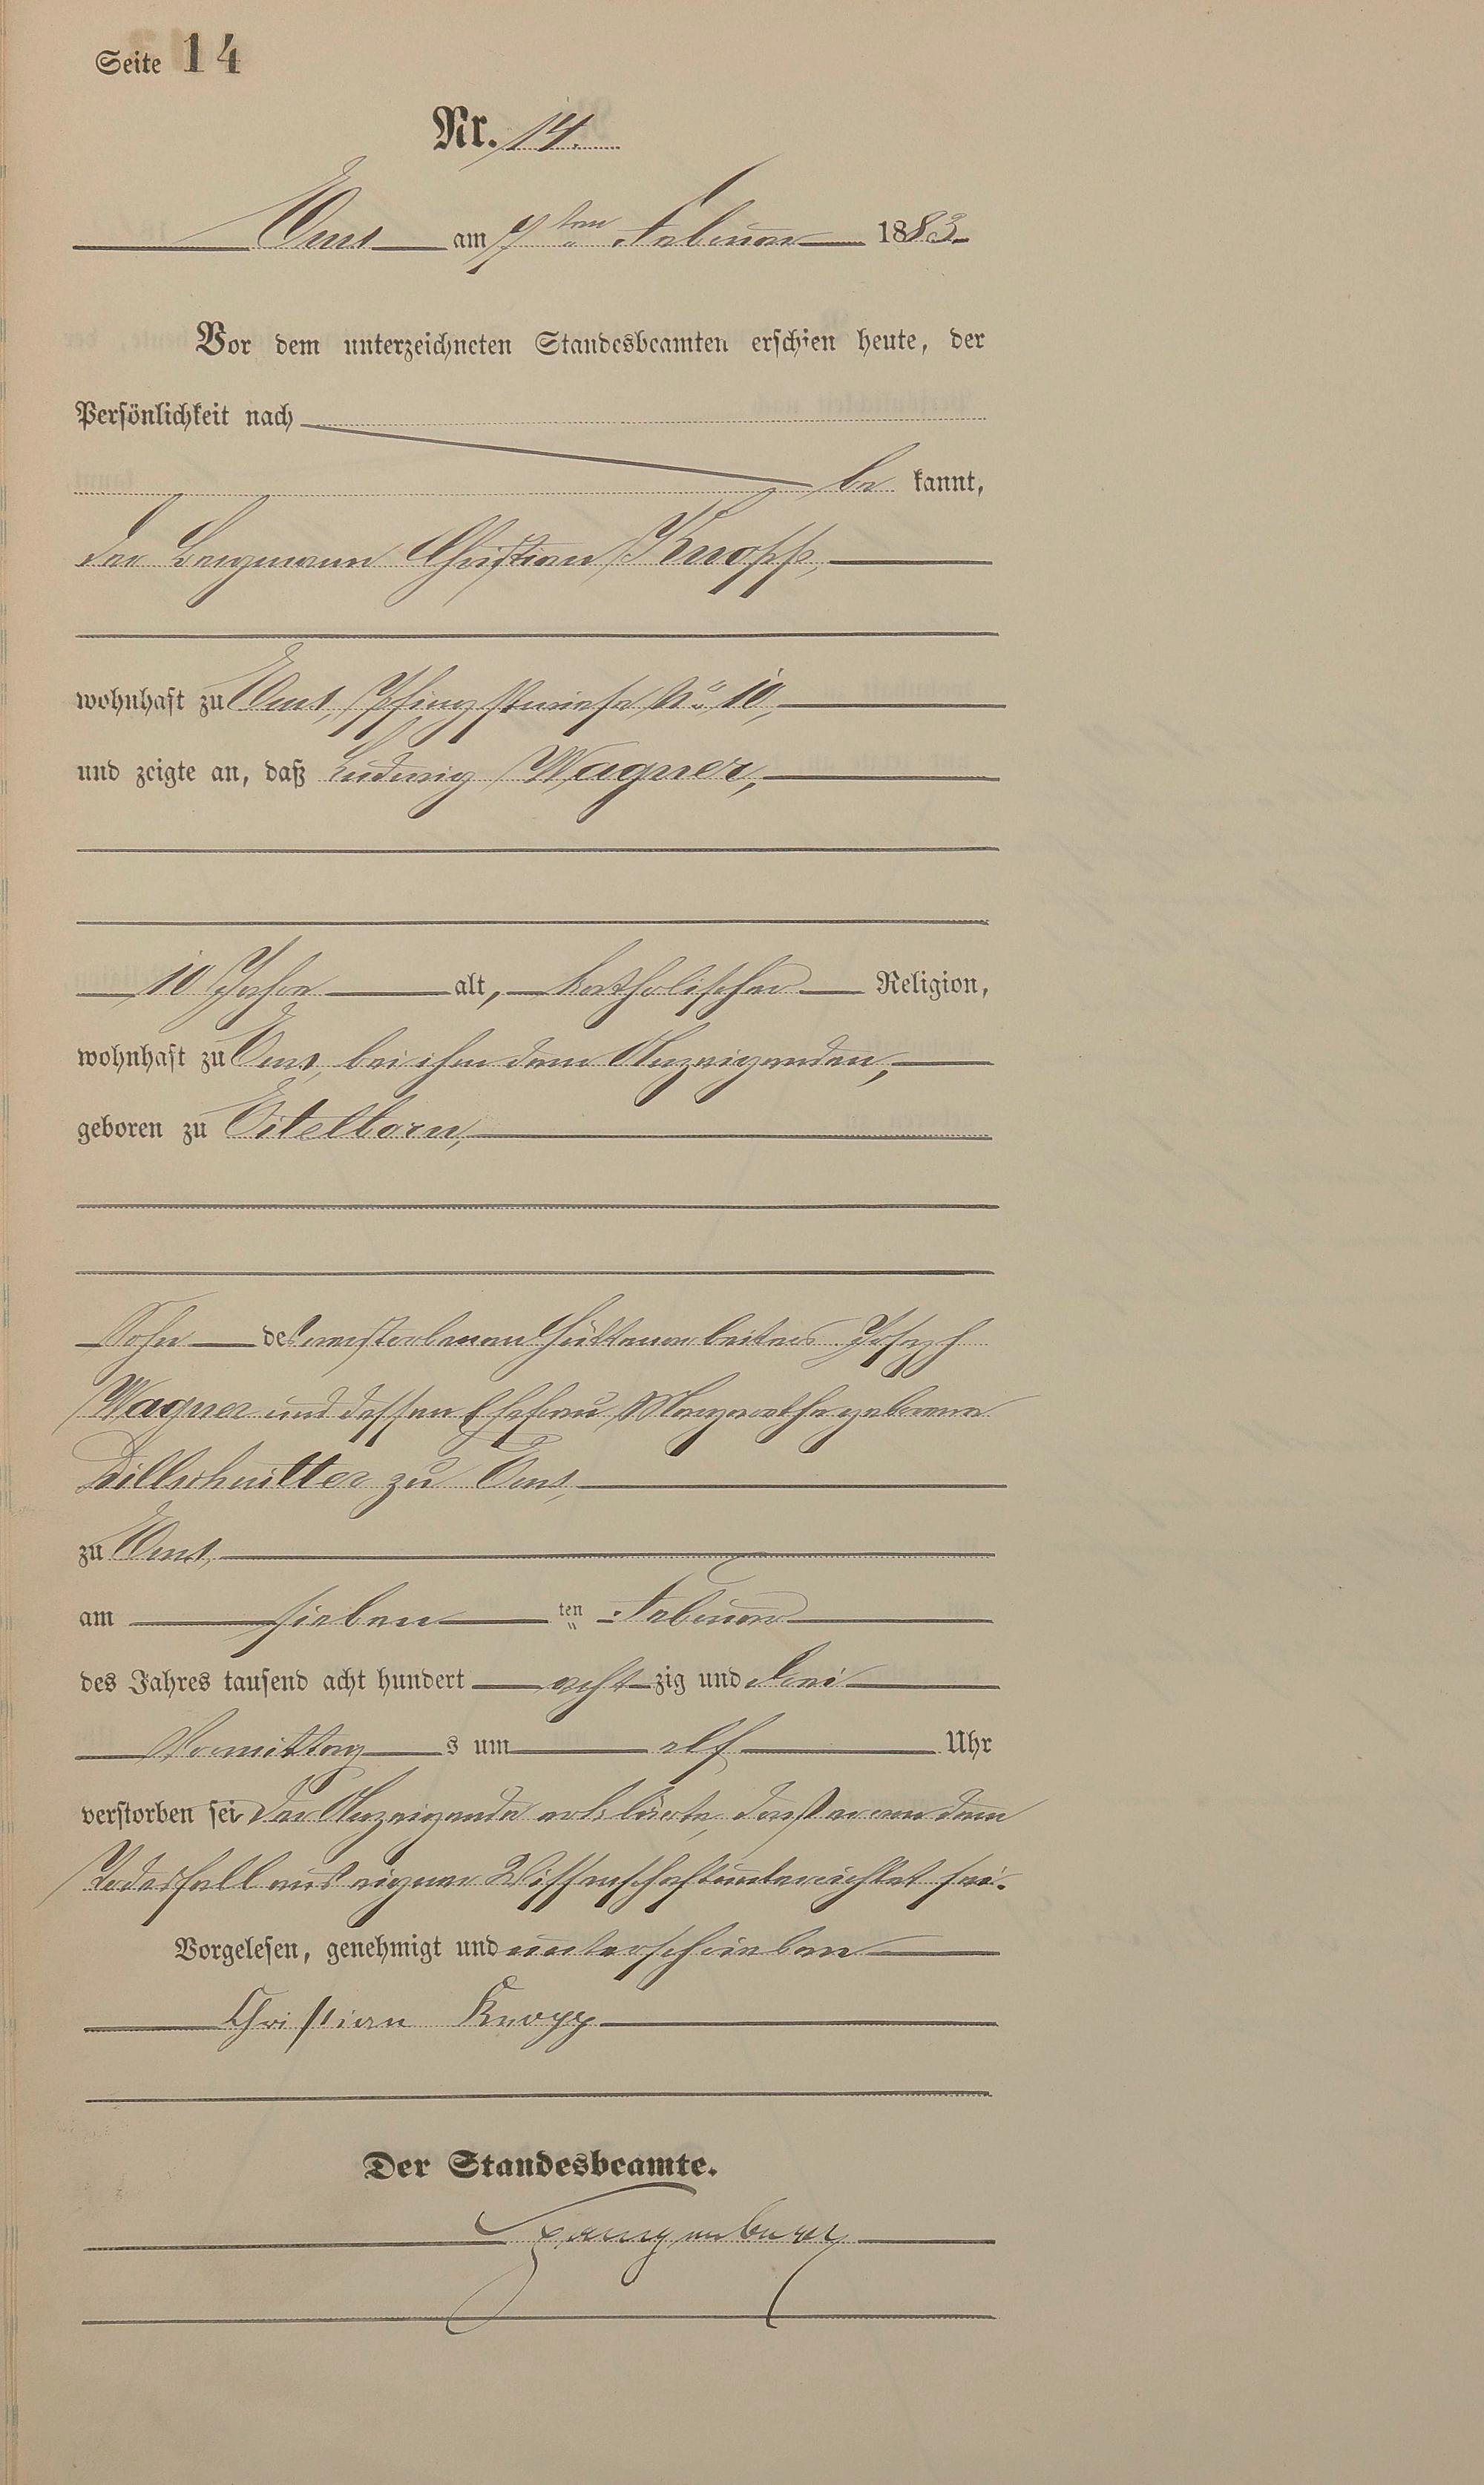 Seite 14
Nr. 14.
Ems am 7ten Februar 1883.
Vor dem unterzeichneten Standesbeamten erschien heute, der
Persönlichkeit nach
be kannt,
der Bergmann Christian Knopp,
wohnhaft zu Ems, Pfingstwiese No 10,
und zeigte an, daß Ludwig Wagner,
10 Jahre alt, katholischer Religion,
wohnhaft zu Ems, bei ihm dem Anzeigenden,
geboren zu Eitelborn,
Sohn des verstorbenen Hüttenarbeiters Joseph
Wagner und dessen Ehefrau Margarethe geborene
Dillschnitter zu Ems,
zu Ems,
am sieben ten Februar
des Jahres tausend acht hundert acht zig und drei
Vormittag s um elf Uhr
verstorben sei. Der Anzeigende erklärte, daß er von dem
Todesfall aus eigener Wissenschaft unterrichtet sei.
Vorgelesen, genehmigt und unterschrieben
Christian Knopp
Der Standesbeamte.
Spangenberg